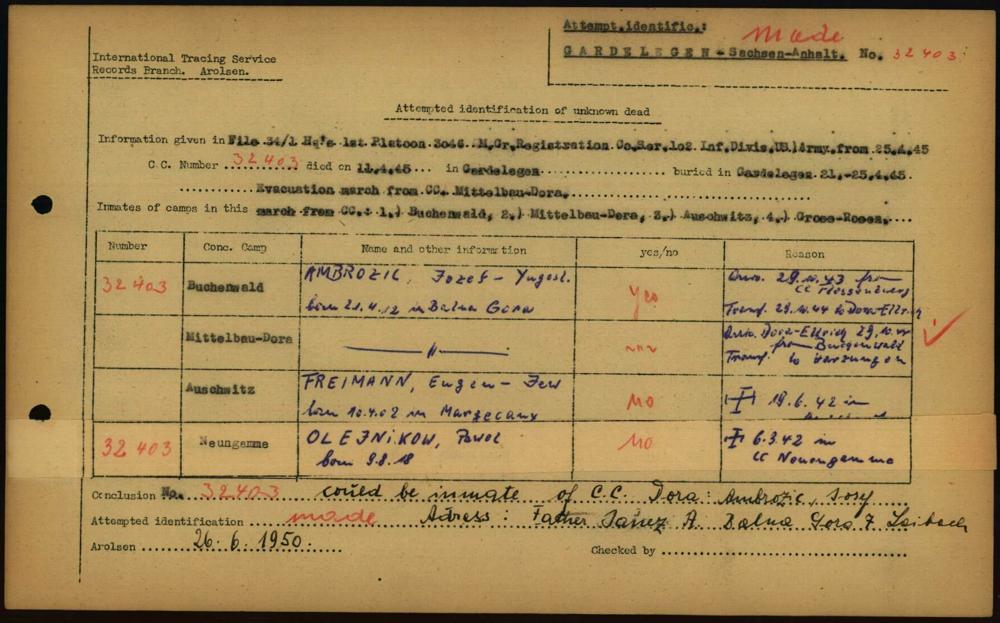 Attempt.identific.: made
GARDELEGEN - Sachsen-Anhalt. No. 32 403
International Tracing Service
Records Branch. Arolsen.
Attempted identification of unknown dead
Information given in File 34/1 Hq's 1st Platoon 3046 M.Gr.Registration Co.Ser.102 Inf.Divis.US.)Army.from 25.4.45
C.C. Number 32 403 died on 11.4.45... in Gardelegen buried in Gardelegen 21.-25.4.45.
Evacuation march from CC. Mittelbau-Dora.
Inmates of camps in this march from CC.: 1.) Buchenwald, 2.) Mittelbau-Dora, 3.) Auschwitz, 4.) Gross-Rosen.
Number Conc. Camp Name and other information yes/no Reason
32 403 Buchenwald AMBROZIC, Jozef - Yugosl. yes 29.10.43 from
CC Flossenbürg
born 21.4.12 in Dalna Gora Transf. 29.10.44 to Dora-Ellrich
Mittelbau-Dora — " — Dora-Ellrich 29.10.44
from Buchenwald
Transf. to Harzungen
Auschwitz FREIMANN, Eugen - Jew no 18.6.42 in
born 10.4.02 in
32 403 Neungamme OLEJNIKOW, Pawel no 6.3.42 in
born 9.8.18 CC Neuengamme
Conclusion No. 32403 could be inmate of C.C. Dora: Ambrozic, Josef
Attempted identification made Adress: Father Janez A. Dalna Gora 7 Laibach
Arolsen 26. 6. 1950. Checked by